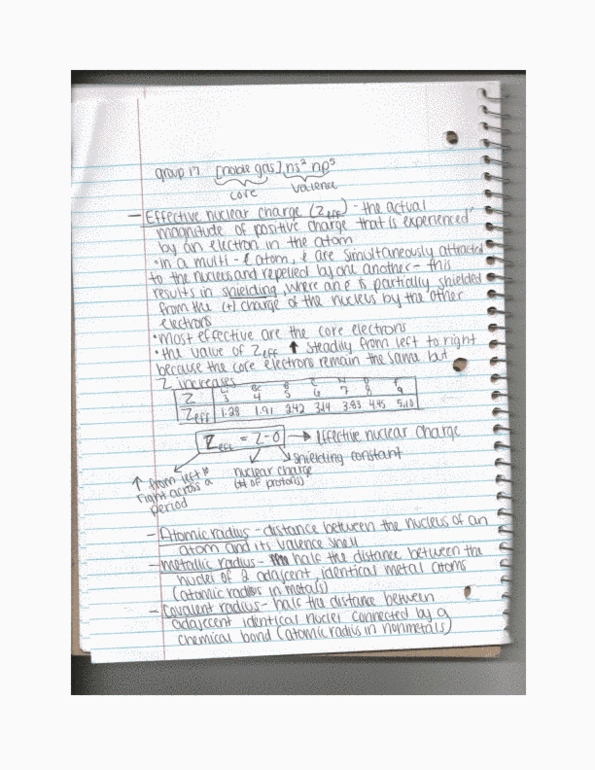 group 17 [noble gas] ns² np⁵
core valence
- Effective nuclear charge (Zeff) - the actual
magnitude of positive charge that is experienced
by an electron in the atom
• in a multi-e atom, e are simultaneously attracted
to the nucleus and repelled by one another - this
results in shielding, where an e is partially shielded
from the (+) charge of the nucleus by the other
electrons
• most effective are the core electrons
• the value of Zeff ↑ steadily from left to right
because the core electrons remain the same but
Z increases
Li Be B C N O F
Z 3 4 5 6 7 8 9
Zeff 1.28 1.91 2.42 3.14 3.83 4.45 5.10
Zeff = Z-σ → Effective nuclear charge
shielding constant
nuclear charge
(# of protons)
↑ from left to
right across a
period
- Atomic radius - distance between the nucleus of an
atom and its valence shell
- metallic radius - half the distance between the
nuclei of 2 adajcent identical metal atoms
(atomic radius in metals)
- covalent radius - half the distance between
adajecent identical nuclei connected by a
chemical bond (atomic radius in nonmetals)